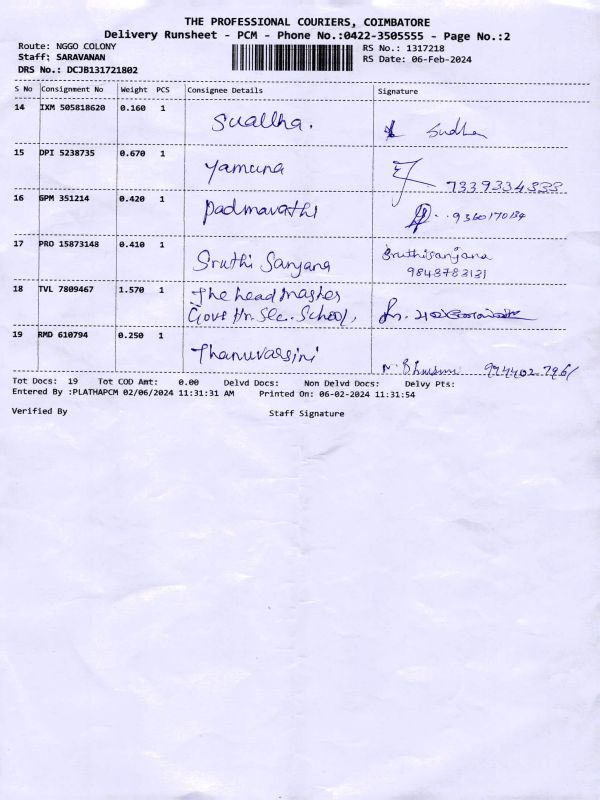 THE PROFESSIONAL COURIERS, COIMBATORE
Delivery Runsheet - PCM - Phone No.:0422-3505555 - Page No.:2
Route: NGGO COLONY
Staff: SARAVANAN
DRS No.: DCJB131721802
RS No.: 1317218
RS Date: 06-Feb-2024
S No Consignment No Weight PCS Consignee Details Signature
14 IXM 505818620 0.160 1 Sudha
15 DPI 5238735 0.670 1 Yamuna
7339334333
16 GPM 351214 0.420 1 Padmavathi
9360170134
17 PRO 15873148 0.410 1 Sruthi Sanjana Sruthisanjana
9843783131
18 TVL 7809467 1.570 1 The head master
Govt Hr. Sec. School,
19 RMD 610794 0.250 1 Thanuvarsini
Tot Docs: 19 Tot COD Amt: 0.00 Delvd Docs: Non Delvd Docs: Delvy Pts:
Entered By :PLATHAPCM 02/06/2024 11:31:31 AM Printed On: 06-02-2024 11:31:54
Verified By Staff Signature